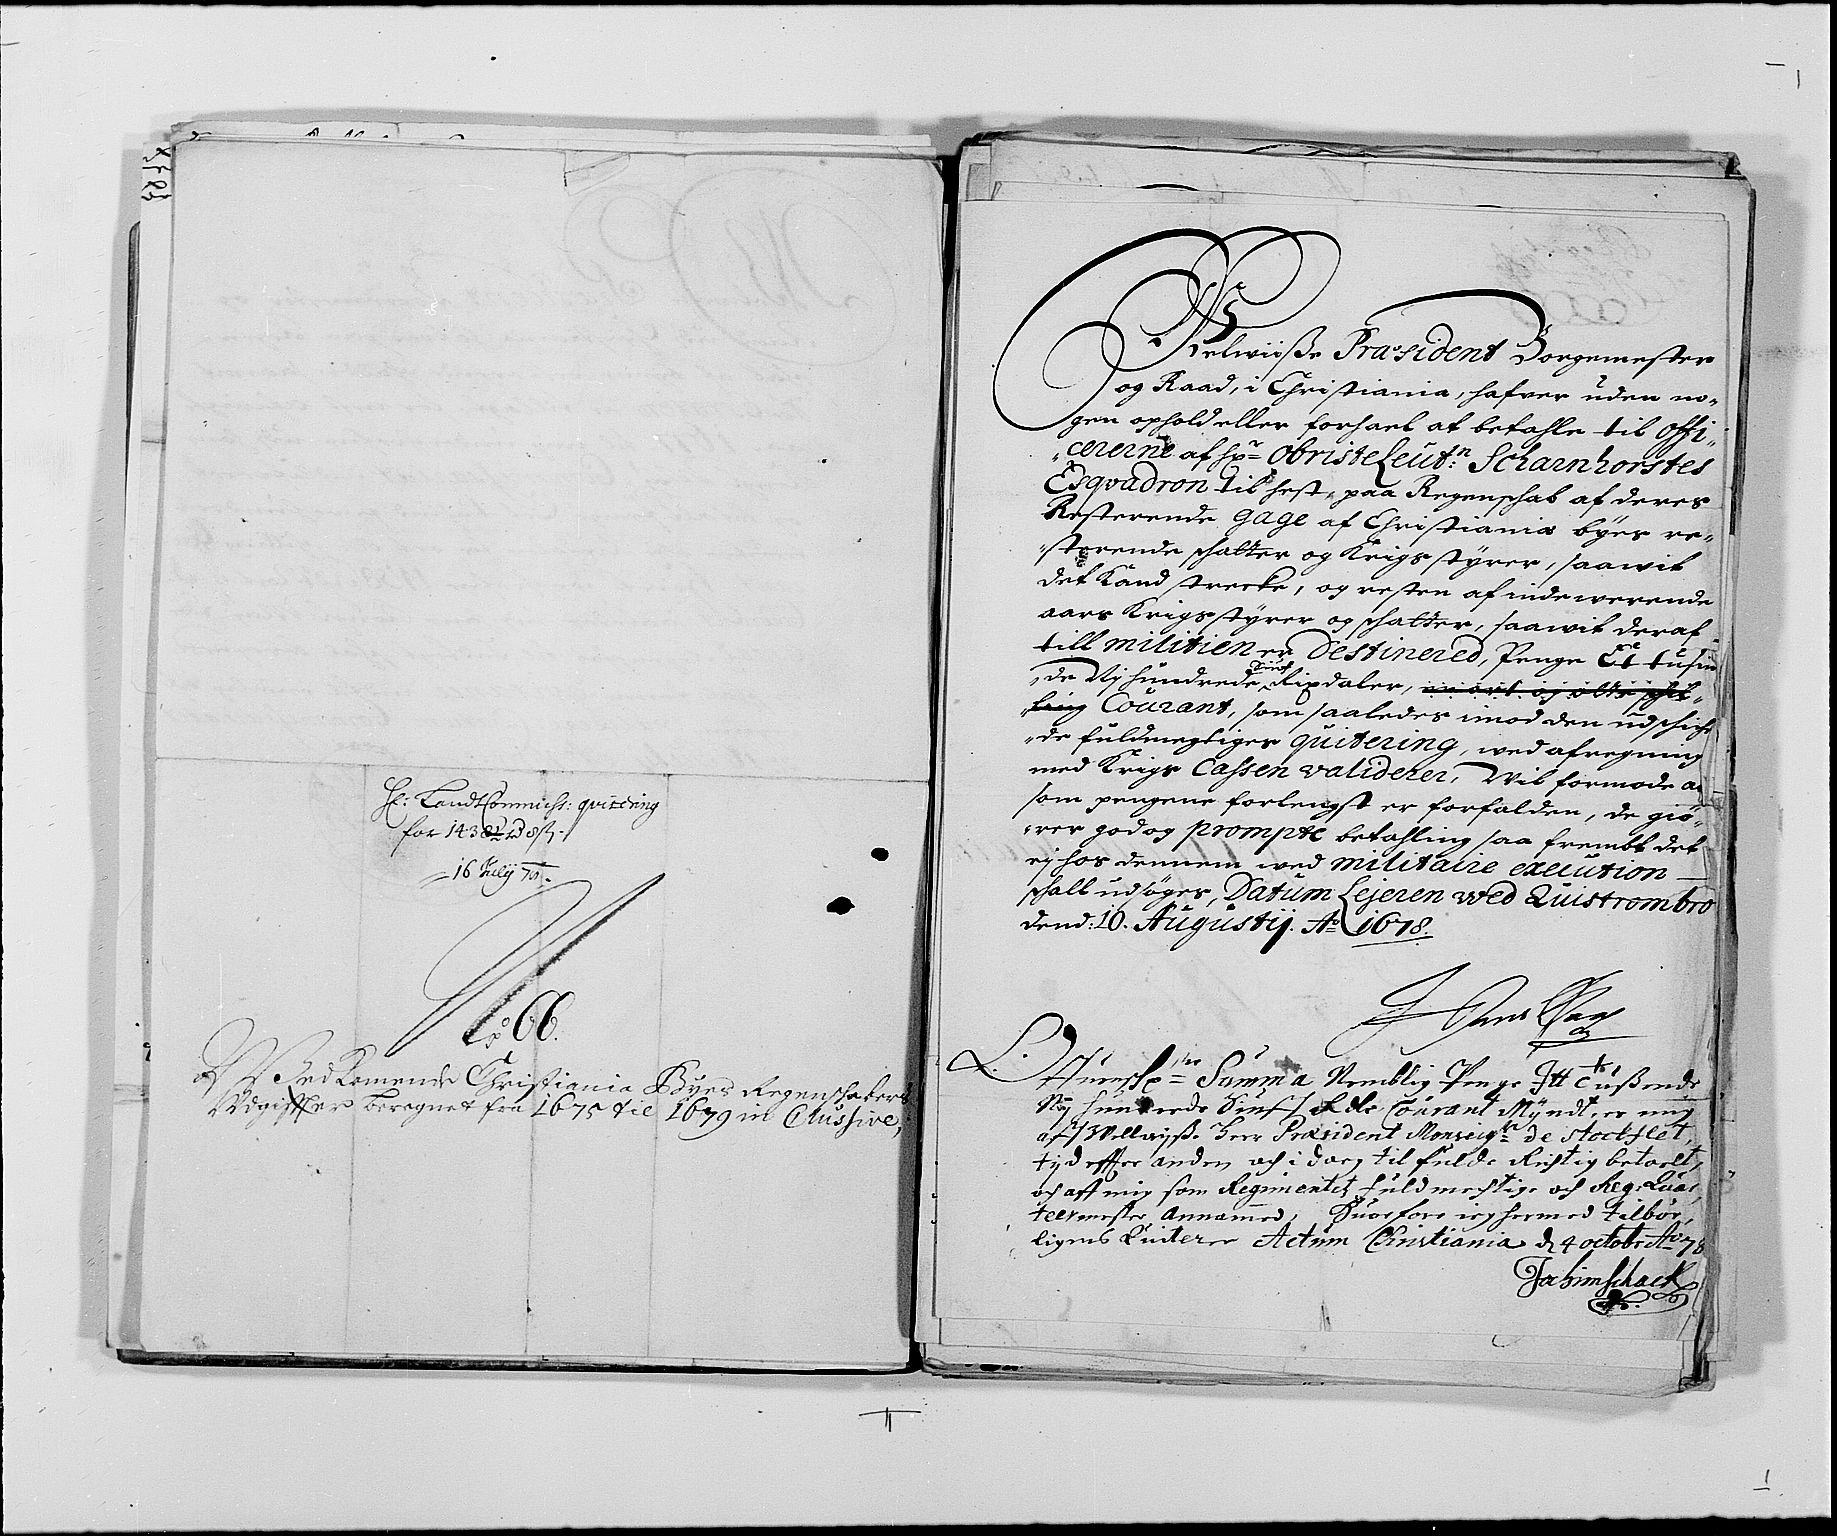 H: Landt Commiss: qvittering
for 1438½ rd 8 s.
16 July 79.
No 66.
Vedkomende Christiania Byes Regenschabers
Udgiffter beregnet fra 1675 til 1679 in Clussive,
Velwiisse Præsident Borgemester
og Raad, i Christiania, hafver uden no-
gen ophold eller forsael at betahle til Offi-
cererne af Hr: Obriste Leut:n Scharnhorstes
Esqvadron til hest, paa Regenschab af deres
Resterende gage af Christiania byes re-
sterende schatter og Krigsstyrer, saawit
det Kand strecke, og resten af indewerende
aars Krigsstyrer og schatter, saawit deraf
till militien er Destinered, Penge Et tusin-
de Ny hundrede Rixdaler,
Courant, som saaledes imod den udschich-
de fuldmegtiges quitering, wed afregning
med Krigs Cassen validerer, Vil formode at
som pengene forlengst er forfalden, de giø-
rer god og prompte betahling saa frembt det
ej hos dennem wed militaire execution
schall udsøges, Datum Lejeren wed Quistrombro
dend: 10. Augustij. Ao 1678.
Summa Nemblig Penge Itt tussende
Nij hundrede Courant Myndt, er mig
aff Wellwijsse Herr Præsident Monseigr de Stockflet,
tijd effter anden och i dag til fulde Richtig betaelt,
och aff mig som Regimentets fuldmechtige och Reg: Quar-
teermester annamed, Huorfore ieg hermed tilbør-
ligens Quiterer Actum Christiania d 4 octobr Ao 78
Jochim Schack